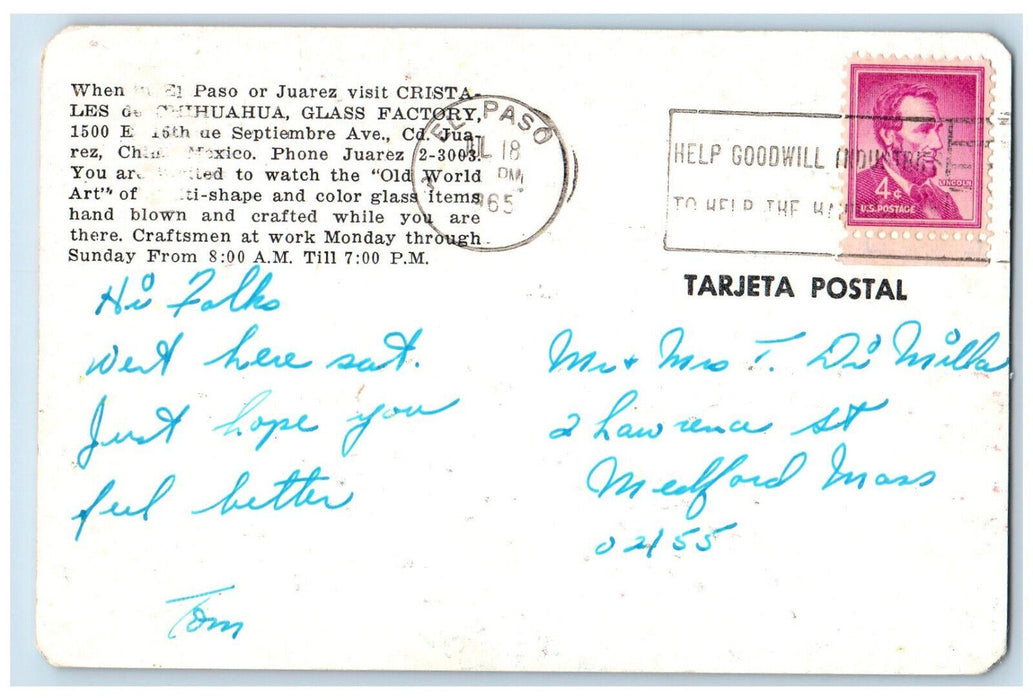 When in El Paso or Juarez visit CRISTA-
LES de CHIHUAHUA, GLASS FACTORY,
1500 E 16th de Septiembre Ave., Cd. Jua-
rez, Chih. Mexico. Phone Juarez 2-3003.
You are invited to watch the "Old World
Art" of multi-shape and color glass items
hand blown and crafted while you are
there. Craftsmen at work Monday through
Sunday From 8:00 A.M. Till 7:00 P.M.
EL PASO
JUL 18
PM
1965
HELP GOODWILL INDUSTRIES
TO HELP THE
LINCOLN
4¢
U.S. POSTAGE
TARJETA POSTAL
Hi Folks
Went here sat.
Just hope you
feel better
Tom
Mr + Mrs T. Di Milla
2 Lawrence St
Medford Mass
02155